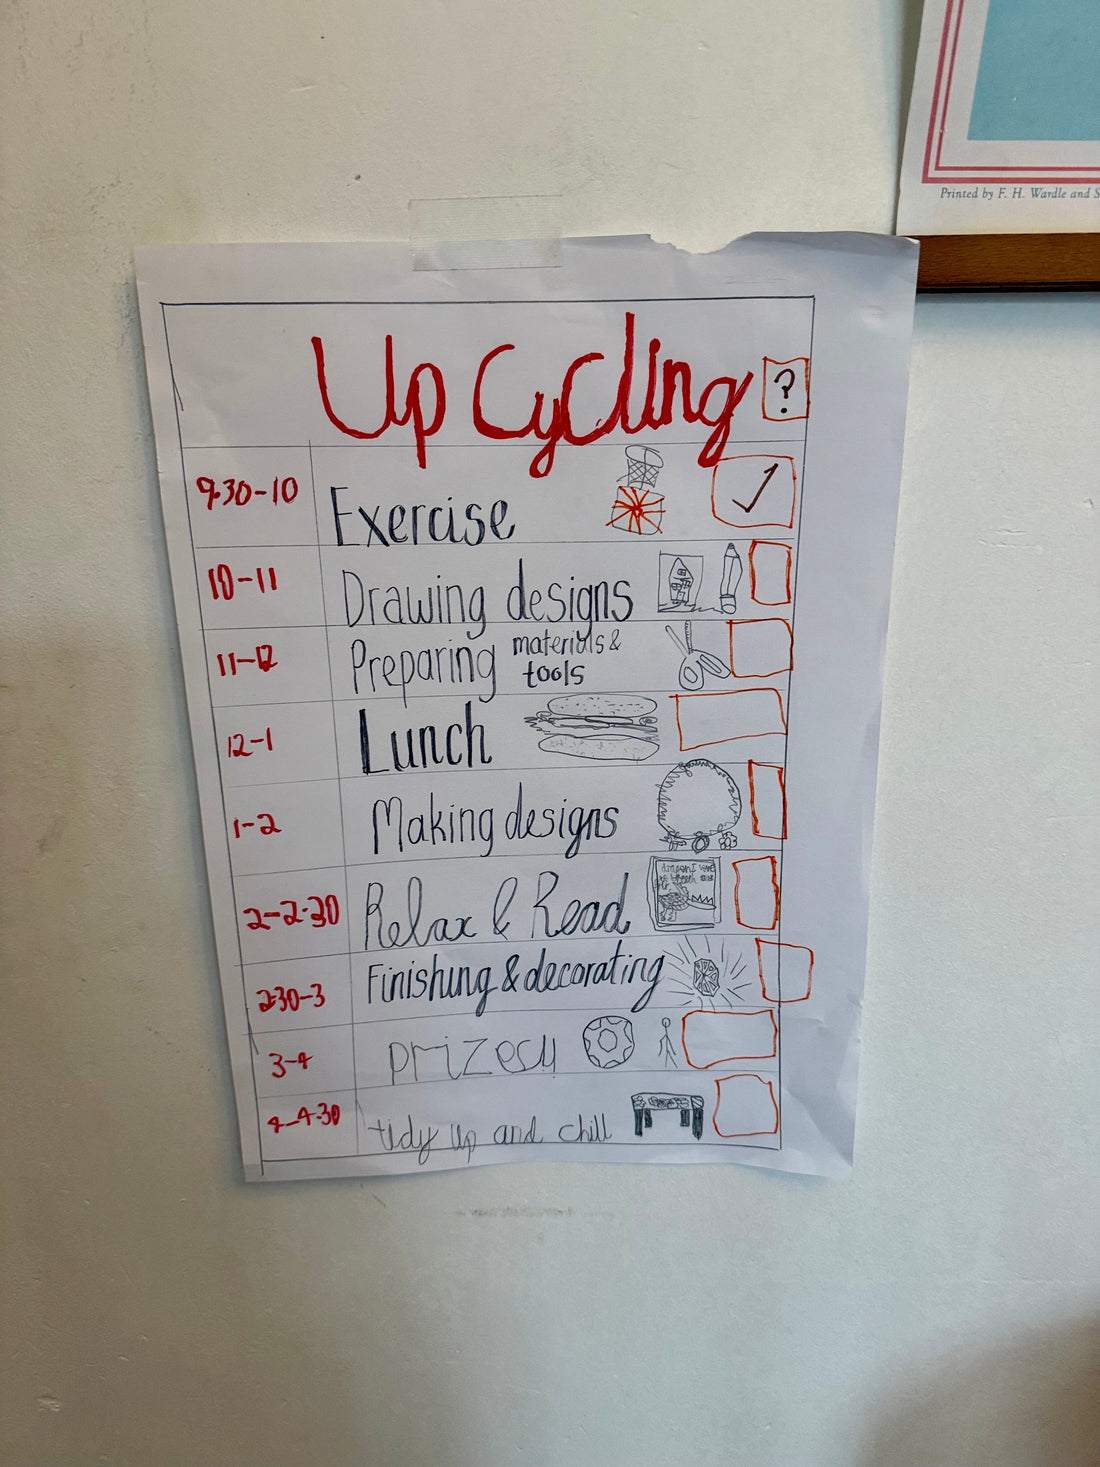 Printed by F. H. Wardle and S
Up Cycling ?
9.30-10 Exercise ✓
10-11 Drawing designs
11-12 Preparing materials & tools
12-1 Lunch
1-2 Making designs
2-2.30 Relax & Read
2.30-3 Finishing & decorating
3-4
4-4.30 tidy up and chill